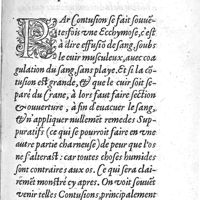 PAr Contusion se fait souuẽ
tesfois vne Ecchymose, c'est
à dire effusiõ de sang, soubs
le cuir musculeux, auec coa
gulation du sang, sans playe. Et si la cõ
tusion est grande, & que le cuir soit se-
paré du Crane, à lors faut faire section
& ouuerture, à fin d'euacuer le sang,
& n'appliquer nullemẽt remedes Sup-
puratifs (ce qui se pourroit faire en vne
autre partie charneuse) de peur que l'os
ne s'alterast: car toutes choses humides
sont contraires aux os. Ce qui sera clai-
rement mõstré cy apres. On voit souuẽt
venir telles Contusions, principalement